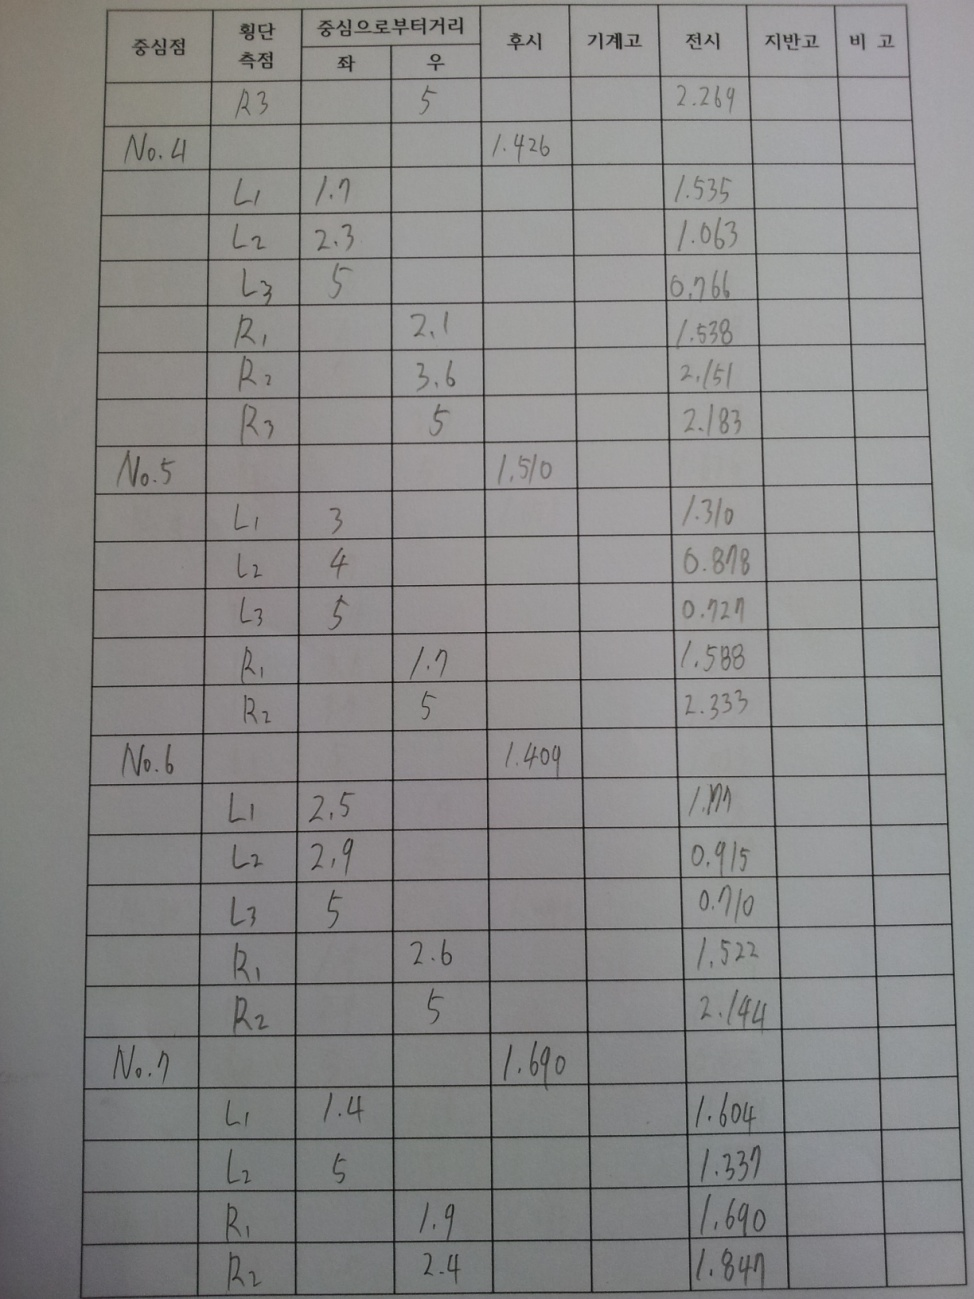 중심점 횡단 측점 중심으로부터거리 좌 우 후시 기계고 전시 지반고 비 고
R3 5 2.269
No.4 1.426
L1 1.7 1.535
L2 2.3 1.063
L3 5 0.766
R1 2.1 1.538
R2 3.6 2.151
R3 5 2.183
No.5 1.510
L1 3 1.310
L2 4 0.878
L3 5 0.727
R1 1.7 1.588
R2 5 2.333
No.6 1.409
L1 2.5
L2 2.9 0.915
L3 5 0.710
R1 2.6 1.522
R2 5 2.144
No.7 1.690
L1 1.4 1.604
L2 5 1.337
R1 1.9 1.690
R2 2.4 1.847